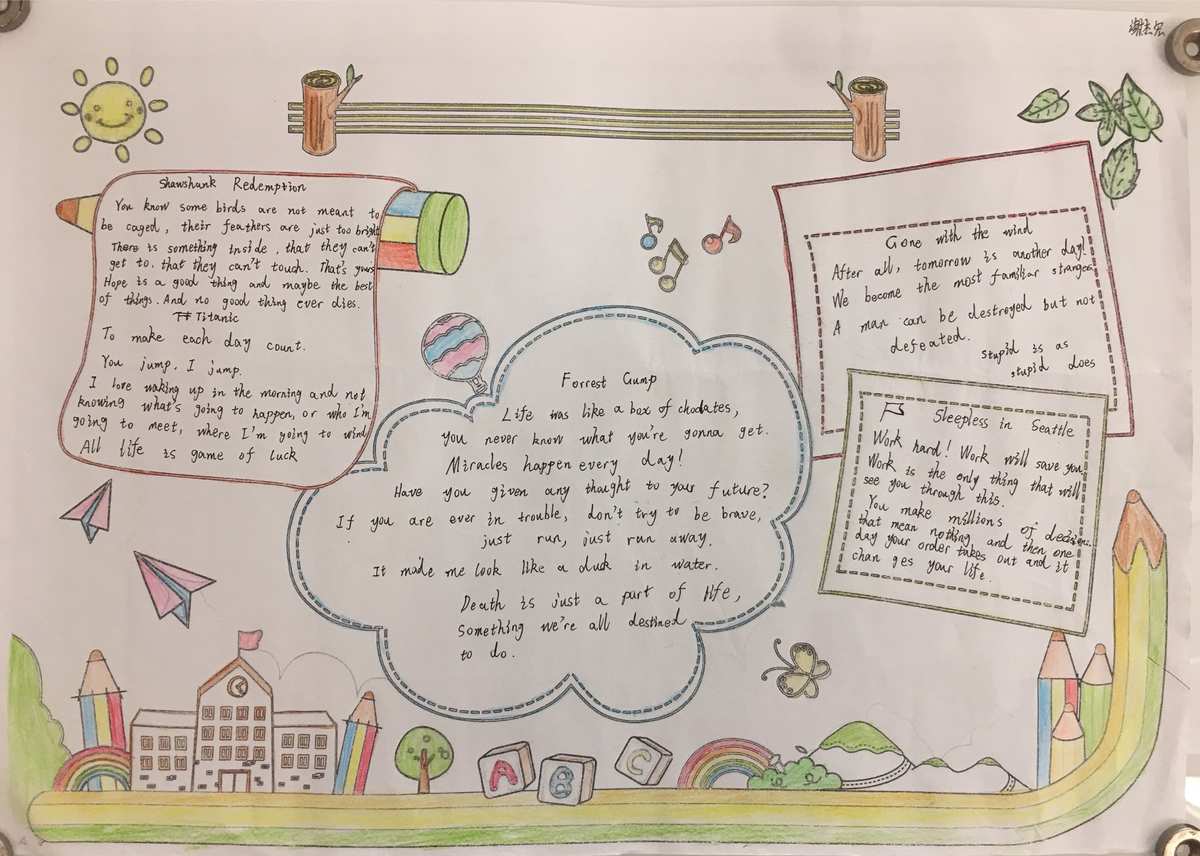 谢杰宏
Shawshunk Redemption
You know some birds are not meant to
be caged, their feathers are just too bright
There is something inside, that they can't
get to, that they can't touch. That's yours
Hope is a good thing and maybe the best
of things. And no good thing ever dies.
Titanic
To make each day count.
You jump, I jump.
I love waking up in the morning and not
knowing what's going to happen, or who I'm
going to meet, where I'm going to wind
All life is game of luck
Gone with the wind
After all, tomorrow is another day!
We become the most familiar stranger
A man can be destroyed but not
defeated.
stupid is as
stupid does
Forrest Gump
Life was like a box of chodates,
you never know what you're gonna get.
Miracles happen every day!
Have you given any thought to your future?
If you are ever in trouble, don't try to be brave,
just run, just run away.
It made me look like a duck in water.
Death is just a part of life,
something we're all destined
to do.
Sleepless in Seattle
Work hard! Work will save you.
Work is the only thing that will
see you through this.
You make millions of decisions
that mean nothing and then one
day your order takes out and it
chan ges your life.
A B C